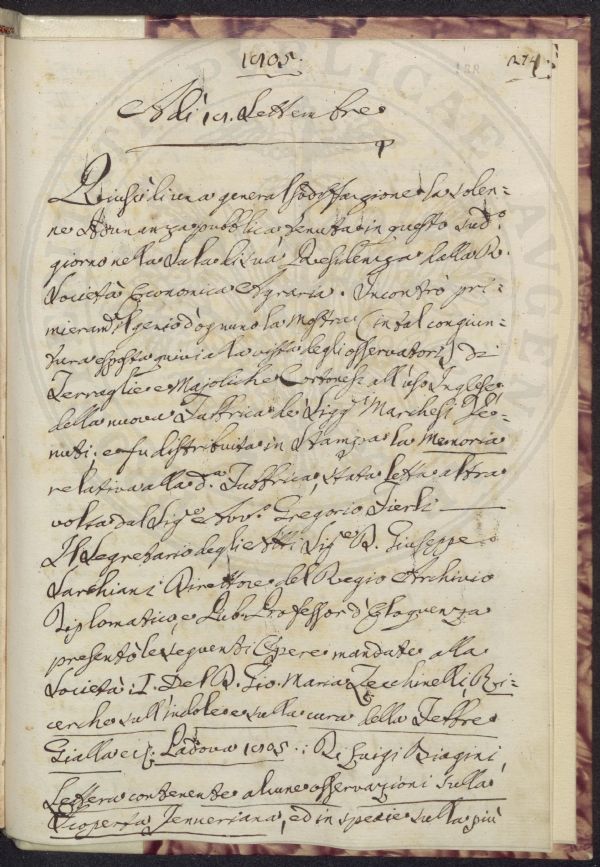 1805.
274
Adì 18. Settembre
Riuscì di una general sodisfazione la solen=
ne Adunanza pubblica tenuta in questo sud.o
giorno nella Sala di sua Residenza dalla R.
Società Economica Agraria. Incontrò pri=
mieram.te il genio d'ognuno la Mostra (in tal congiun=
tura esposta quivi alla vista degli osservatori) di
Terraglie e Majoliche Cortonesi all'uso Inglese
della nuova Fabbrica de' Sigg.i Marchesi Ve=
nuti. e fu distribuita in Stampa la Memoria
relativa alla d.a Fabbrica, stata letta altra
volta dal Sig.e Avv.o Gregorio Fierli
Il Segretario degli Atti Sig.e D. Giuseppe
Sarchiani Direttore del Regio Archivio
Diplomatico, e Pub. Professor d'Eloquenza
presentò le seguenti Opere mandate alla
Società: I. Del D. Gio. Maria Zecchinelli, Ri=
cerche sull'indole e sulla cura della Febbre
Gialla ec. Padova 1805.: D. Luigi Biagini,
Lettera contenente alcune osservazioni sulla
Scoperta Jenneriana, ed in specie sulla più